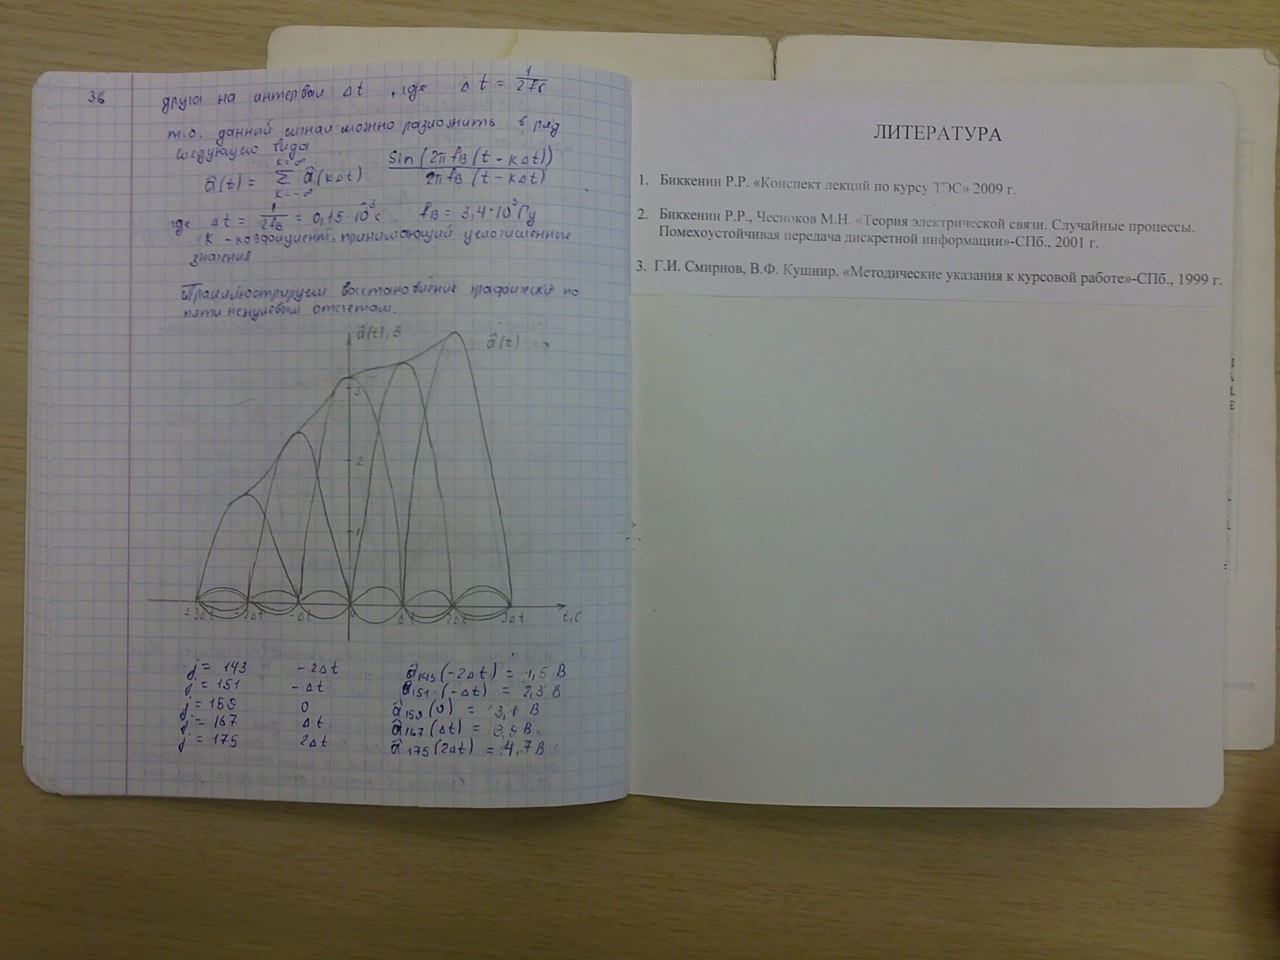 36
другa на интервал Δt , где Δt = 1/2fв
т.о. данный сигнал можно разложить в ряд
следующего вида
â(t) = Σ (k=-∞ … k=∞) â(kΔt) Sin(2πfв(t - kΔt)) / 2πfв(t - kΔt)
где Δt = 1/2fв = 0,15·10⁻³с fв = 3,4·10³Гц
k - коэффициент, принимающий целочисленные
значения
Проиллюстрируем восстановление графически по
пяти ненулевым отсчетам.
â(t), В
â(t)
3
2
1
-3Δt -2Δt -Δt 0 Δt 2Δt 3Δt t, с
j = 143 -2Δt â₁₄₃(-2Δt) = 1,5 В
j = 151 -Δt â₁₅₁(-Δt) = 2,3 В
j = 159 0 â₁₅₉(0) = 3,1 В
j = 167 Δt â₁₆₇(Δt) = 3,9 В.
j = 175 2Δt â₁₇₅(2Δt) = 4,7 В
ЛИТЕРАТУРА
1. Биккенин Р.Р. «Конспект лекций по курсу ТЭС» 2009 г.
2. Биккенин Р.Р., Чесноков М.Н. «Теория электрической связи. Случайные процессы.
Помехоустойчивая передача дискретной информации»-СПб., 2001 г.
3. Г.И. Смирнов, В.Ф. Кушнир. «Методические указания к курсовой работе»-СПб., 1999 г.